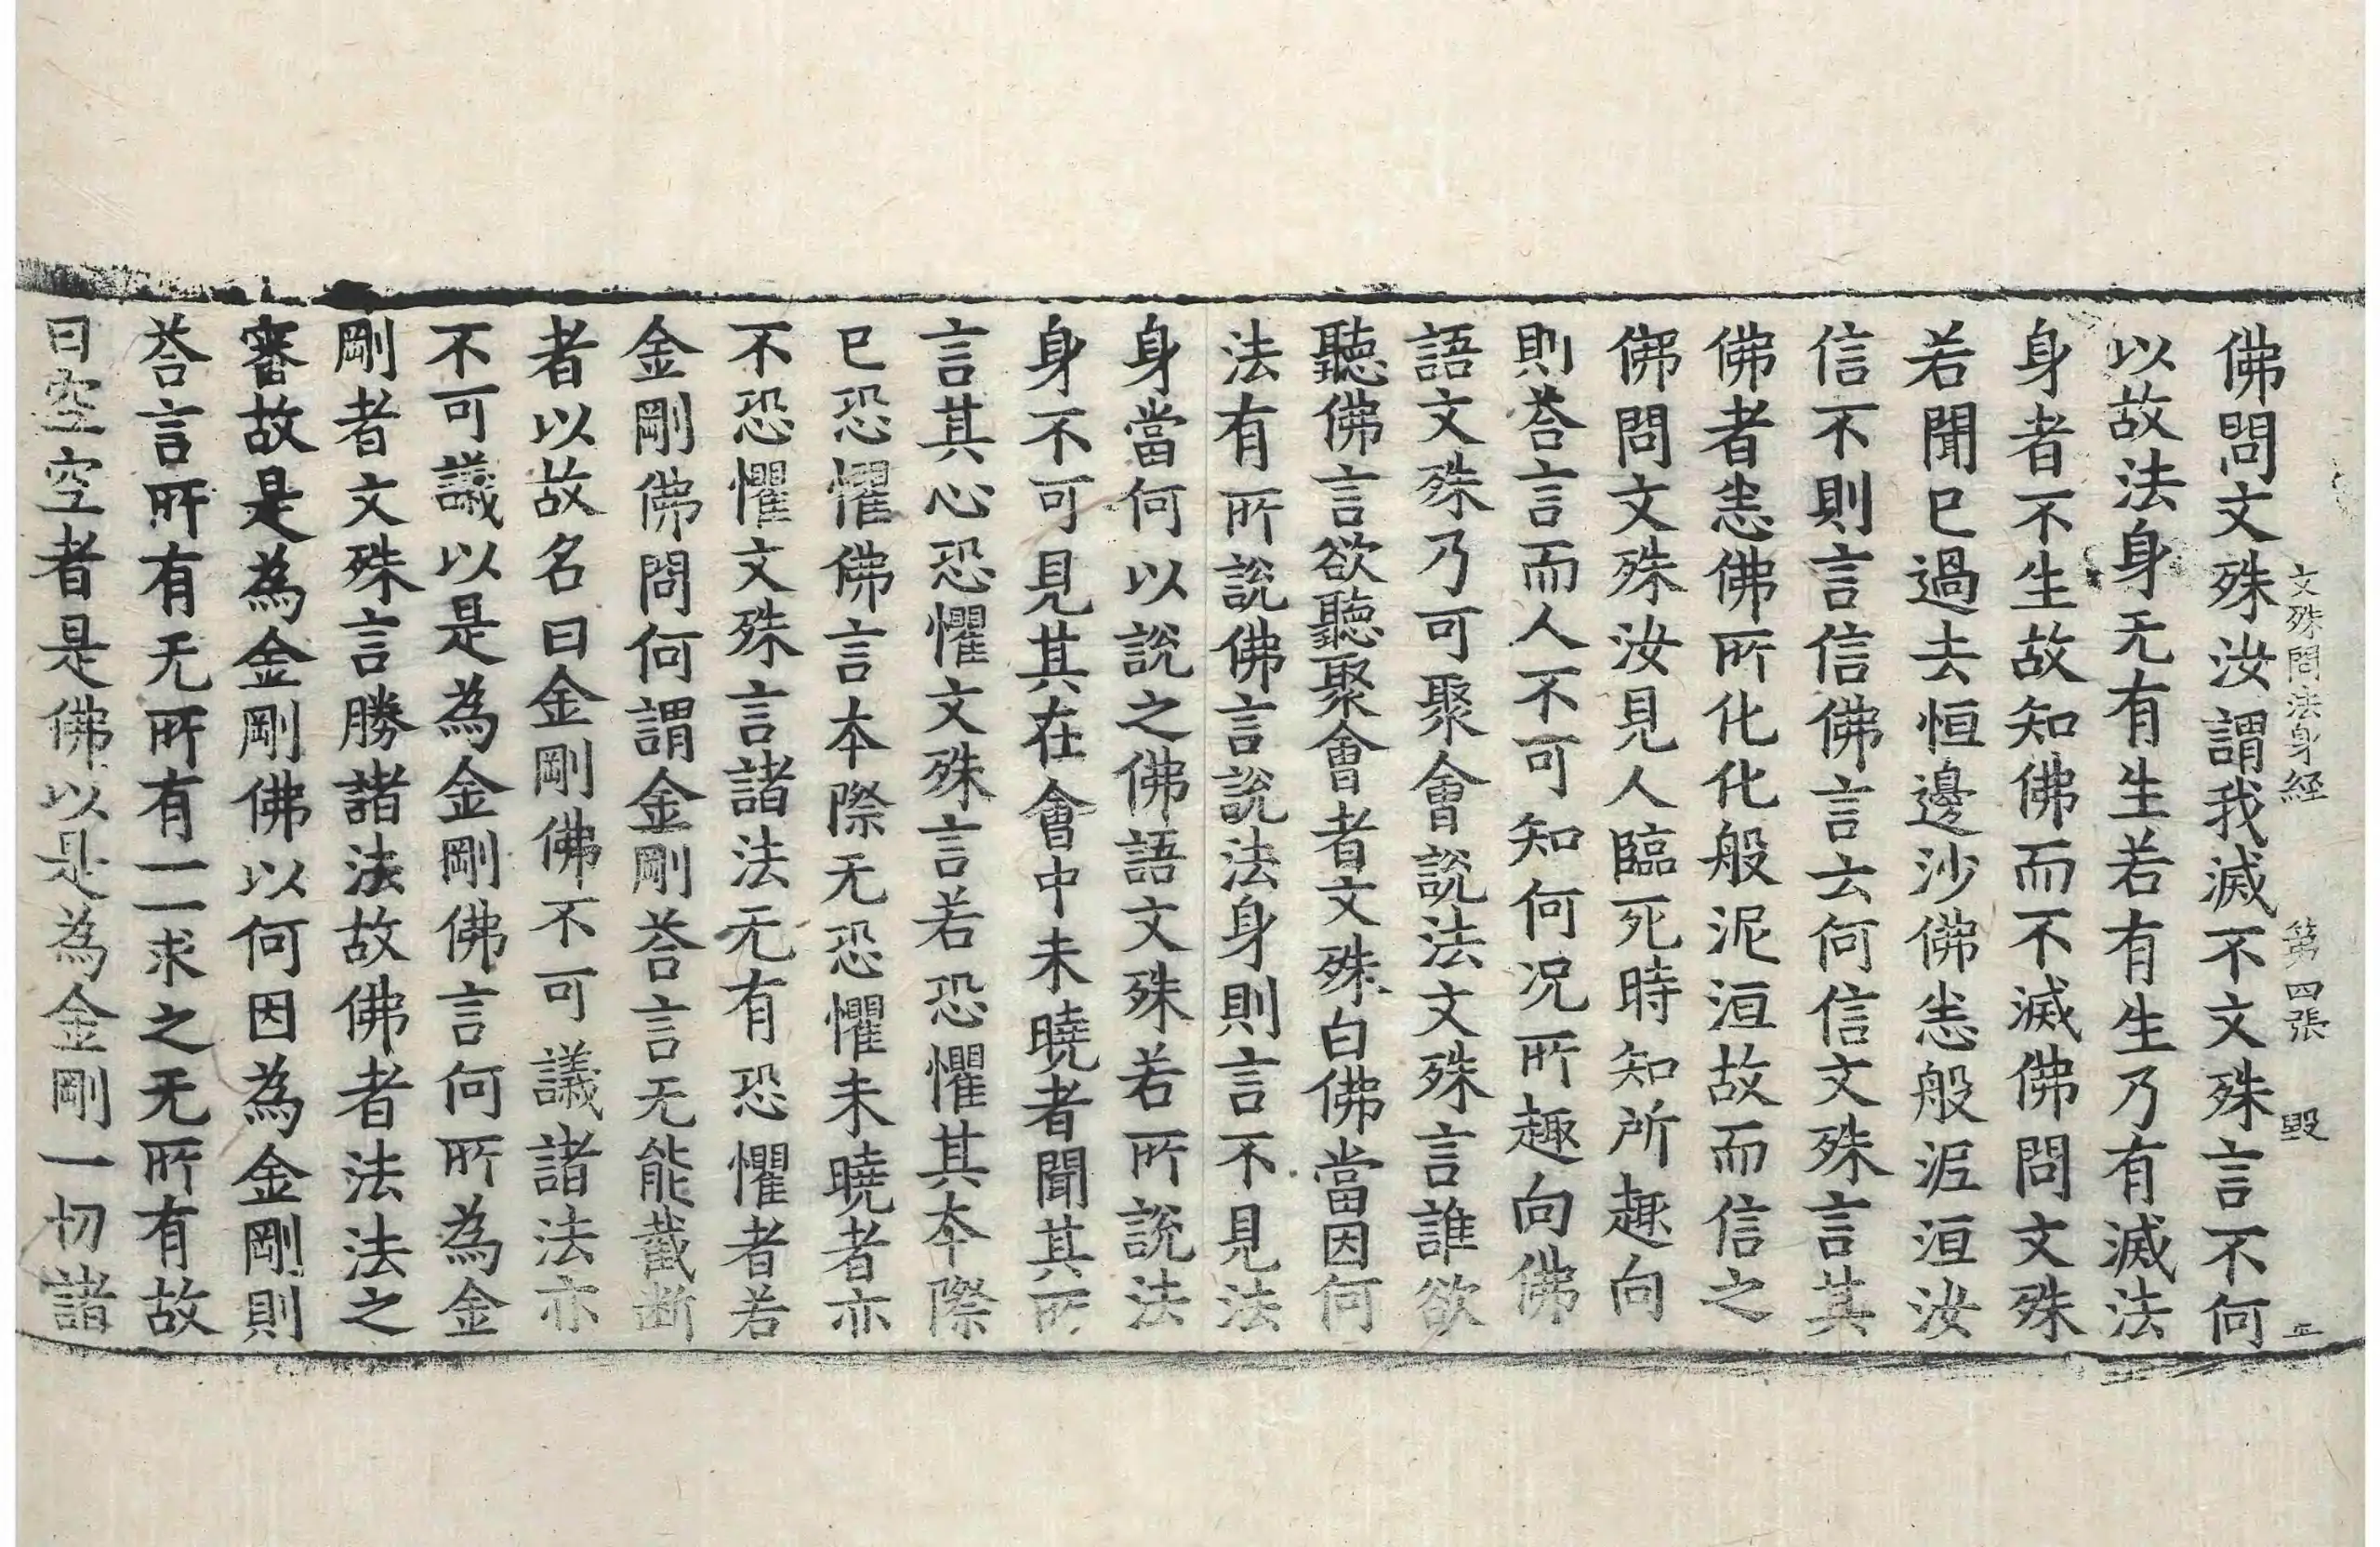 文殊問法身経 第四張 毀
佛問文殊汝謂我滅不文殊言不何
以故法身无有生若有生乃有滅法
身者不生故知佛而不滅佛問文殊
若聞已過去恒邊沙佛恙般泥洹汝
信不則言信佛言云何信文殊言其
佛者恙佛所化化般泥洹故而信之
佛問文殊汝見人臨死時知所趣向
則荅言而人不可知何况所趣向佛
語文殊乃可聚會說法文殊言誰欲
聽佛言欲聽聚會者文殊白佛當因何
法有所說佛言說法身則言不見法
身當何以說之佛語文殊若所說法
身不可見其在會中未曉者聞其所
言其心恐懼文殊言若恐懼其本際
已恐懼佛言本際无恐懼未曉者亦
不恐懼文殊言諸法无有恐懼者若
金剛佛問何謂金剛荅言无能截断
者以故名曰金剛佛不可議諸法亦
不可議以是為金剛佛言何所為金
剛者文殊言勝諸法故佛者法法之
審故是為金剛佛以何因為金剛則
荅言所有无所有一一求之无所有故
曰空空者是佛以是為金剛一切諸